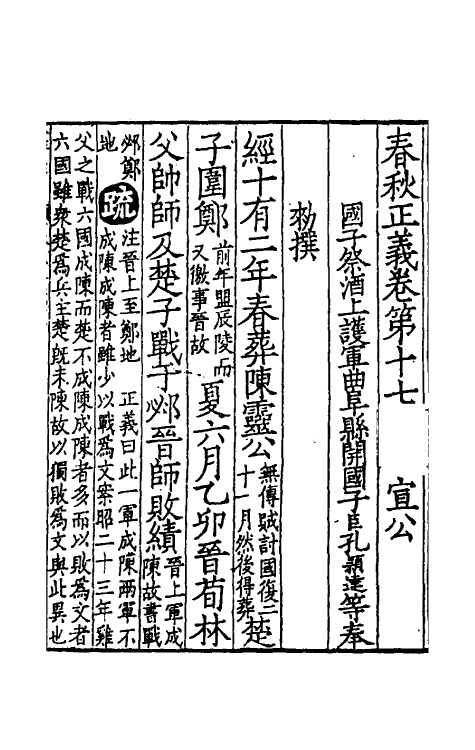 春秋正義卷第十七　宣公
國子祭酒上護軍曲阜縣開國子臣孔穎達等奉
勑撰
經十有二年春葬陳靈公無傳賊討國復二十一月然後得葬楚
子圍鄭前年盟辰陵而又徼事晉故夏六月乙卯晉荀林
父帥師及楚子戰于邲晉師敗績晉上軍成陳故書戰
邲鄭地疏注晉上至鄭地　正義曰此一軍成陳兩軍不成陳成陳者雖少以戰爲文案昭二十三年雞
父之戰六國成陳而楚不成陳成陳者多而以敗爲文者六國雖衆楚爲兵主楚旣未陳故以獨敗爲文與此異也